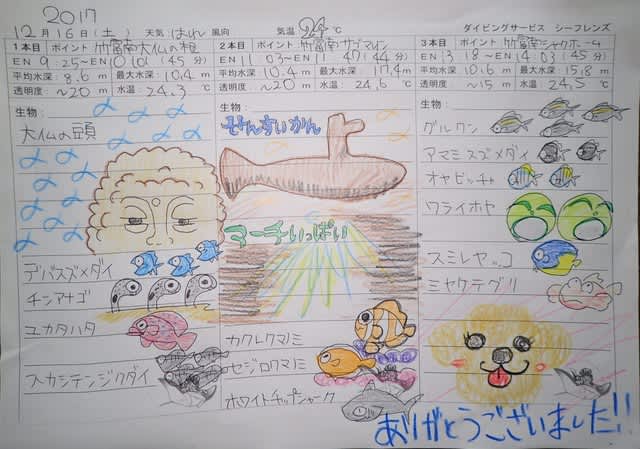 2017
12月16日(土) 天気 はれ 風向 気温 24℃ ダイビングサービス シーフレンズ
1本目 ポイント 竹富南大仏の根
EN 9:25~EN 10:10 (45分)
平均水深: 8.6 m 最大水深: 10.4 m
透明度: ~20 m 水温: 24.3 ℃
生物:
大仏の頭
デバスズメダイ
チンアナゴ
ユカタハタ
スカシテンジクダイ
2本目 ポイント 竹富南サブマリン
EN 11:03~EN 11:47 (44分)
平均水深: 10.4 m 最大水深: 17.4 m
透明度: ~20 m 水温: 24.6 ℃
生物:
せんすいかん
アーチいっぱい
カクレクマノミ
セジロクマノミ
ホワイトチップシャーク
3本目 ポイント 竹富南シャークホーム
EN 13:18~EN 14:03 (45分)
平均水深: 10.6 m 最大水深: 15.8 m
透明度: ~15 m 水温: 24.5 ℃
生物:
グルクン
アマミスズメダイ
オヤビッチャ
ワライボヤ
スミレヤッコ
ミヤケテグリ
ありがとうございました!!